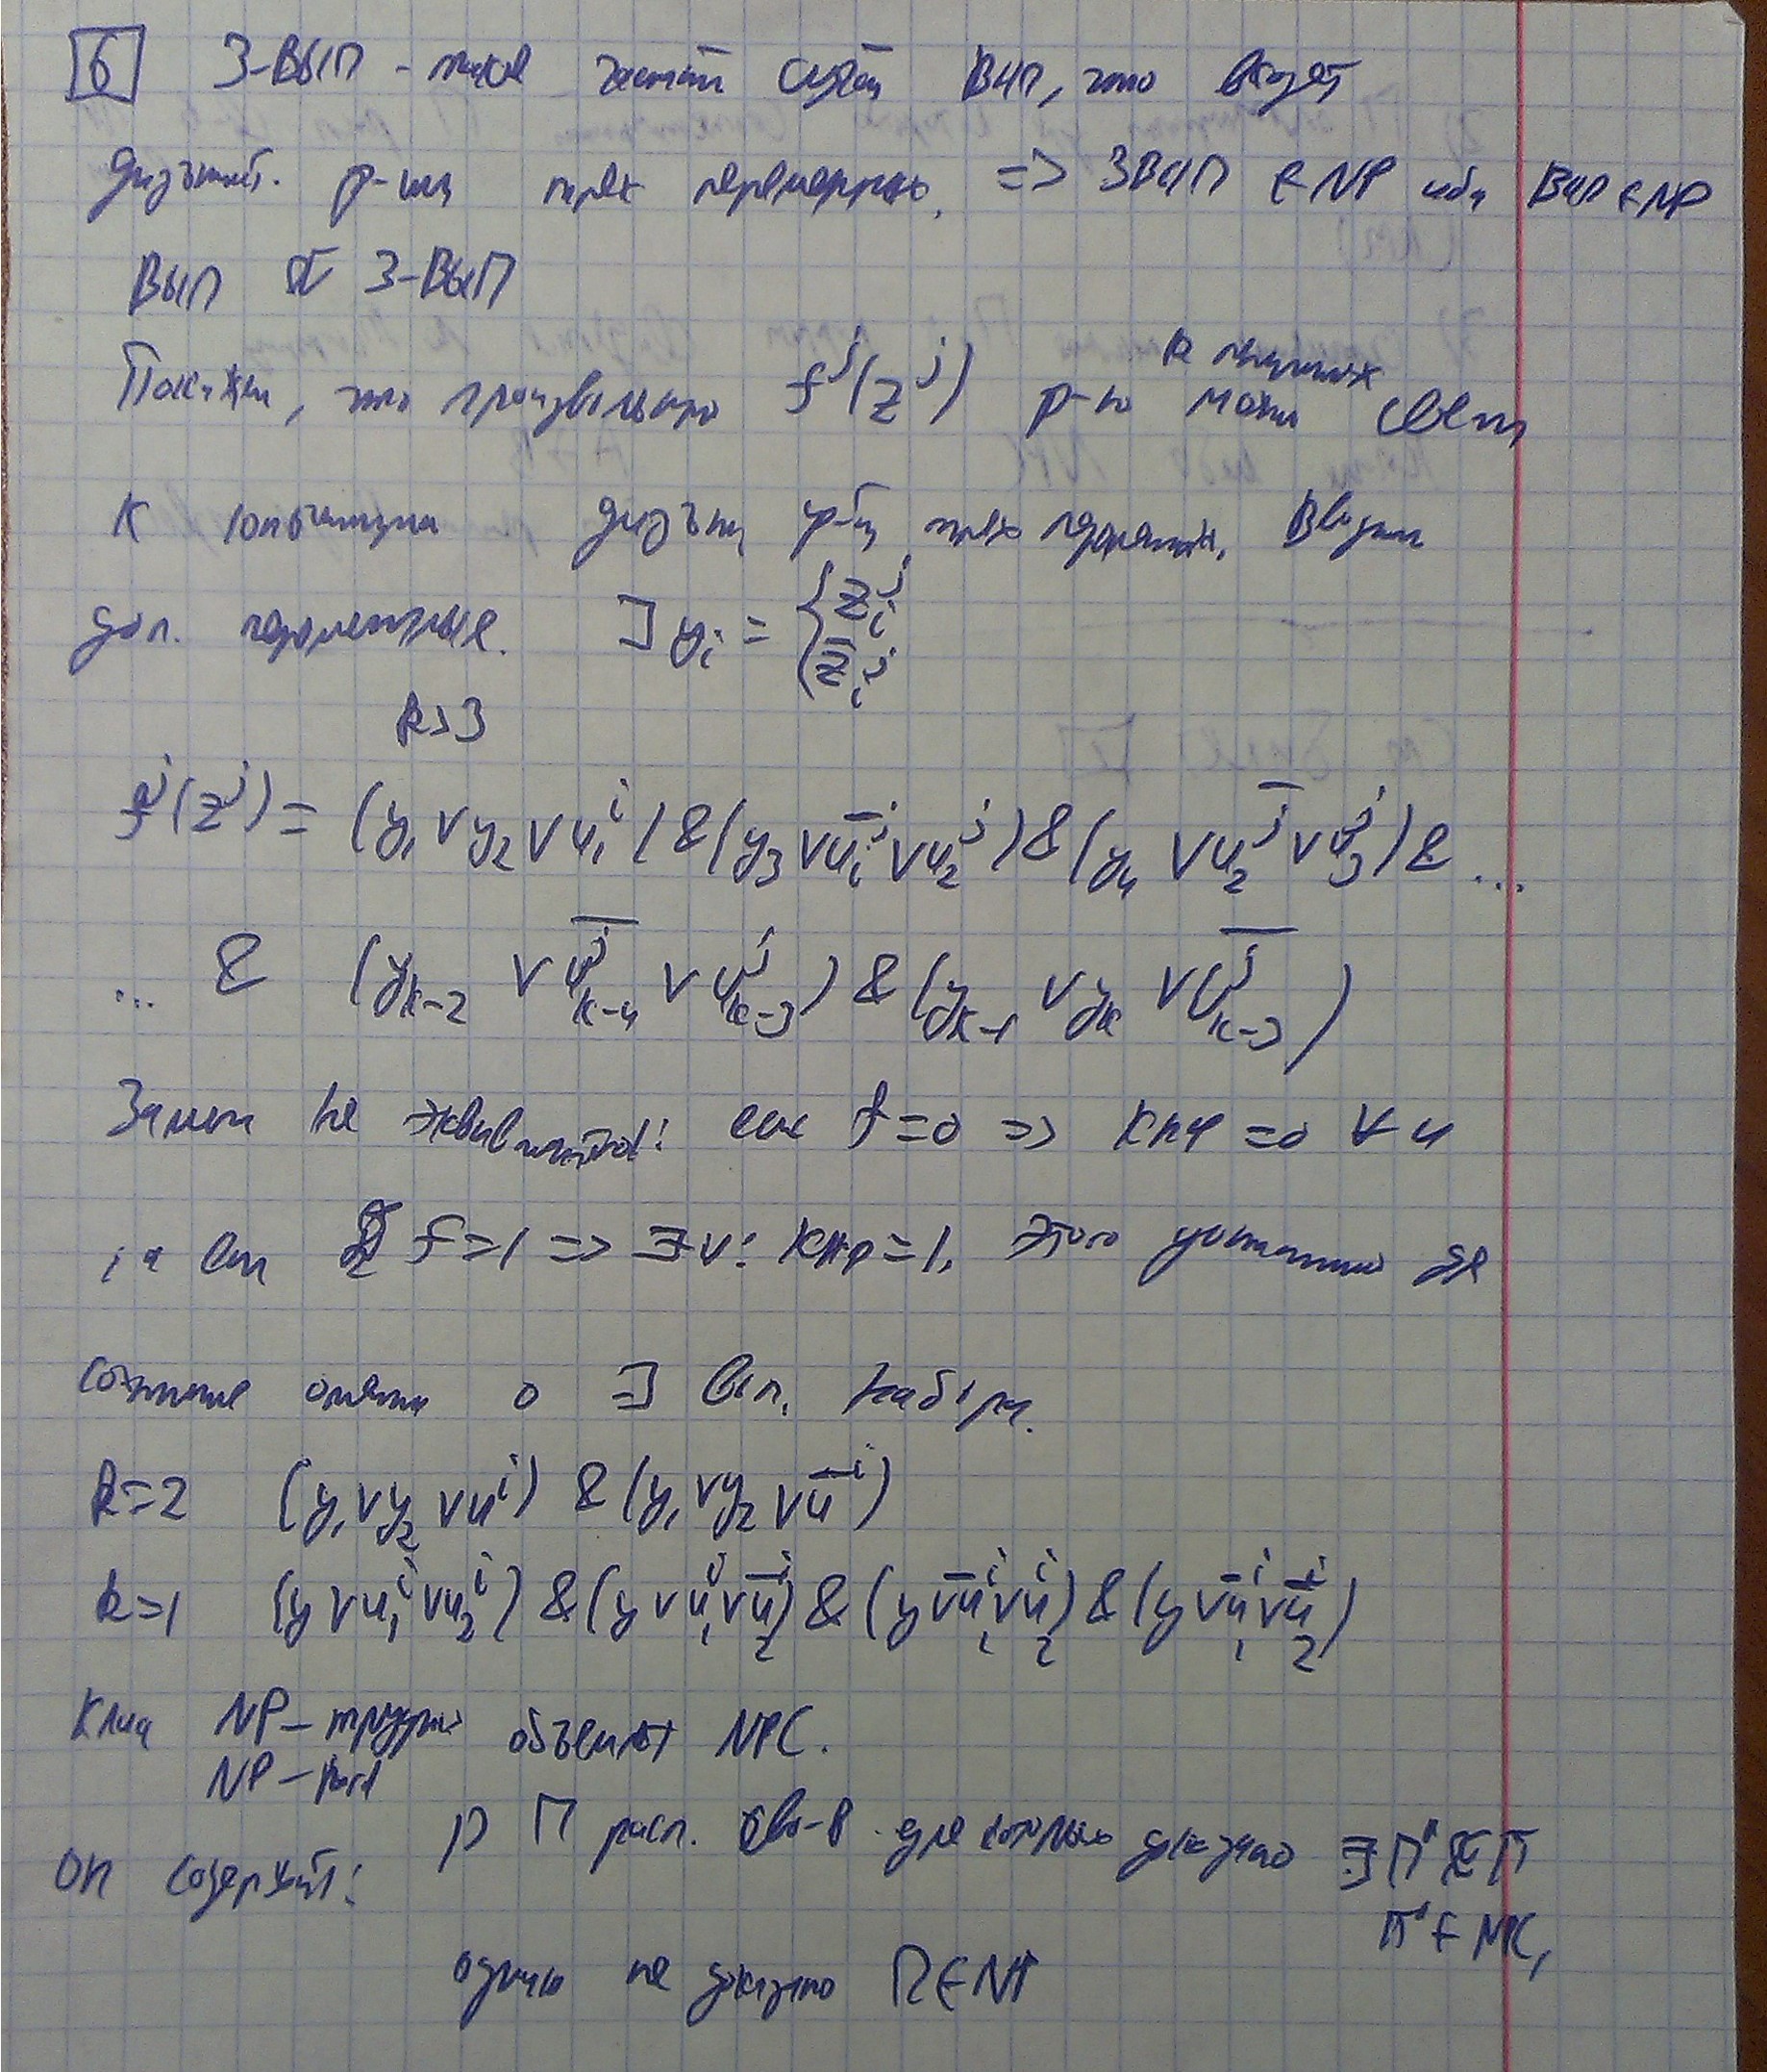 6 3-ВЫП - такой частный случай ВЫП, что входят
дизъюнкт. ф-ии трех переменных. => 3ВЫП ∈ NP ибо ВЫП ∈ NP
ВЫП ∝ 3-ВЫП
Покажем, что произвольную f^j(z^j) ф-ю k переменных можно свести
к конъюнкции дизъюнкт. ф-ий трех переменных. Вводим
доп. переменные. ∃ y_i = { z_i^j ; z̅_i^j
k>3
f^j(z^j) = (y_1 ∨ y_2 ∨ u_1^j) & (y_3 ∨ u̅_1^j ∨ u_2^j) & (y_4 ∨ u̅_2^j ∨ u_3^j) & ...
... & (y_{k-2} ∨ u̅_{k-4}^j ∨ u_{k-3}^j) & (y_{k-1} ∨ y_k ∨ u̅_{k-3}^j)
Замена не эквивалентна: если f=0 => КНФ=0 ∀u
а если f=1 => ∃u: КНФ=1. Этого достаточно для
ответа о ∃ вып. набора.
k=2 (y_1 ∨ y_2 ∨ u^j) & (y_1 ∨ y_2 ∨ u̅^j)
k=1 (y ∨ u_1^j ∨ u_2^j) & (y ∨ u_1^j ∨ u̅_2^j) & (y ∨ u̅_1^j ∨ u_2^j) & (y ∨ u̅_1^j ∨ u̅_2^j)
Класс NP-трудных объемлет NPC.
NP-hard
Он содержит: 1) П расп. св-в для которых доказано ∃ П' ∝ П
П' ∈ NPC,
однако не доказано П ∈ NP